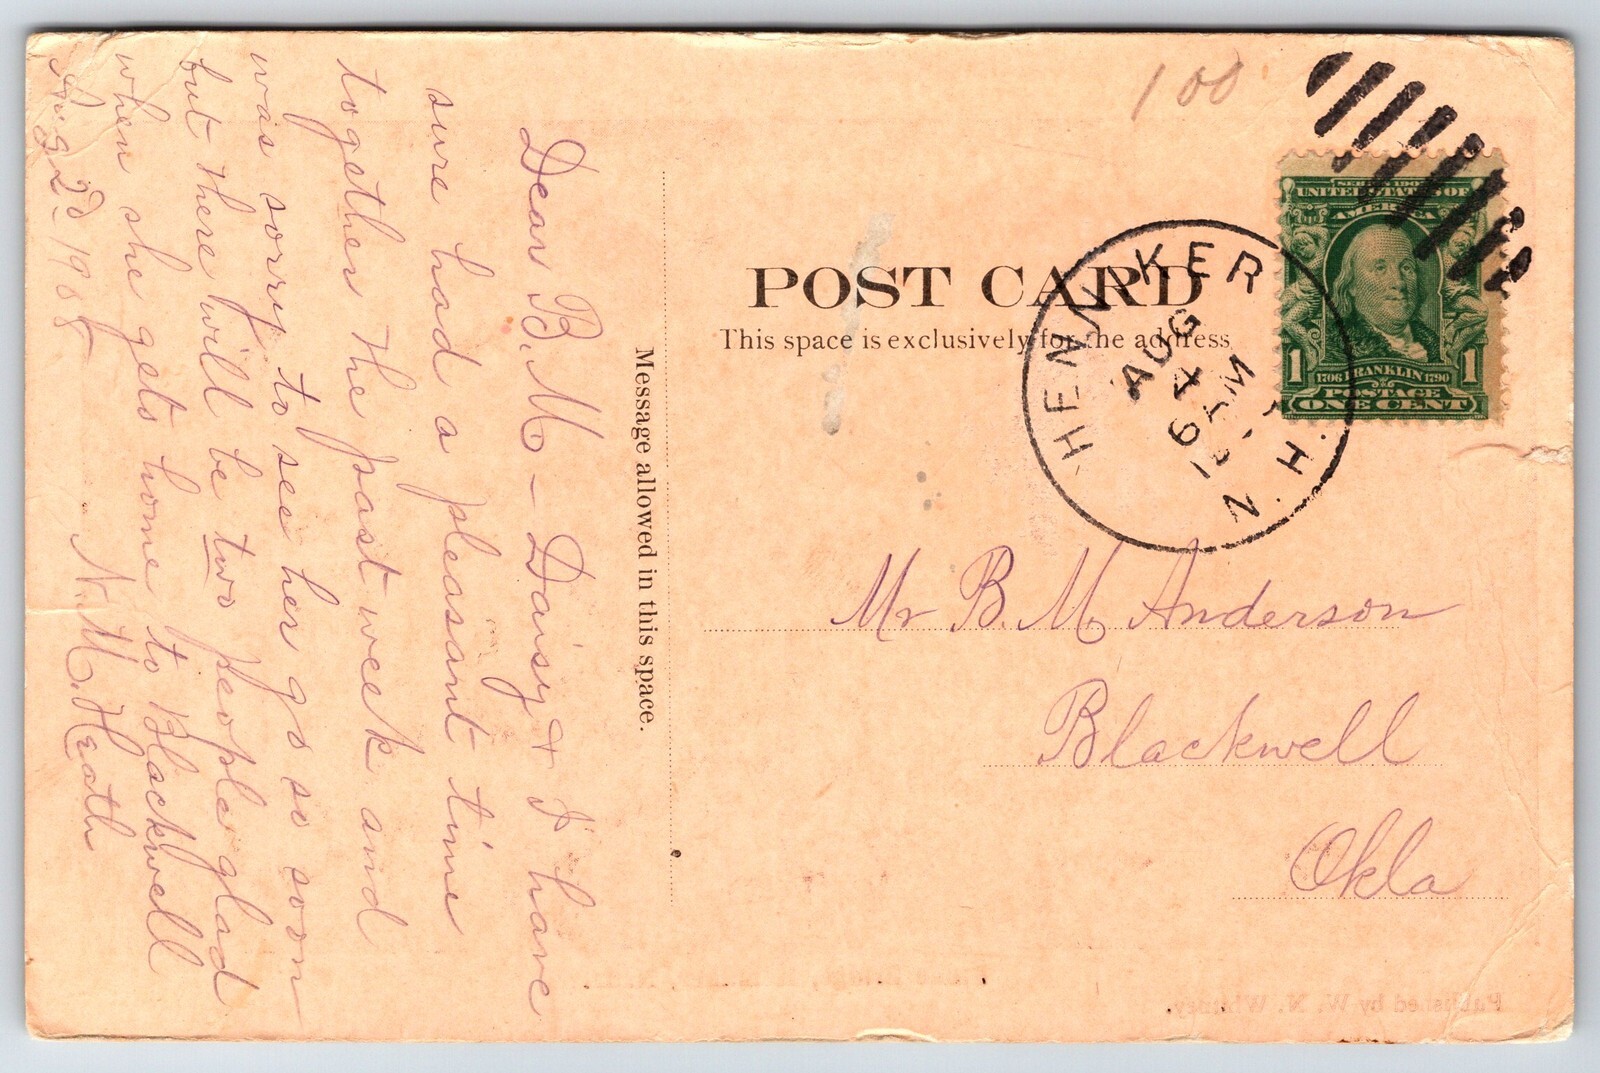 Dear B. M. – Daisy & I have
sure had a pleasant time
together the past week and
was sorry to see her go so soon
but there will be two people glad
when she gets home to Blackwell
Aug 2d 1908
N. M. Heath
Message allowed in this space.
100
POST CARD
This space is exclusively for the address
HENNIKER
AUG
4
6
M
N.H.
UNITED STATES OF
AMERICA
1 1706 FRANKLIN 1790 1
POSTAGE
ONE CENT
Mr B. M. Anderson
Blackwell
Okla
Published by W. N. Whitney.